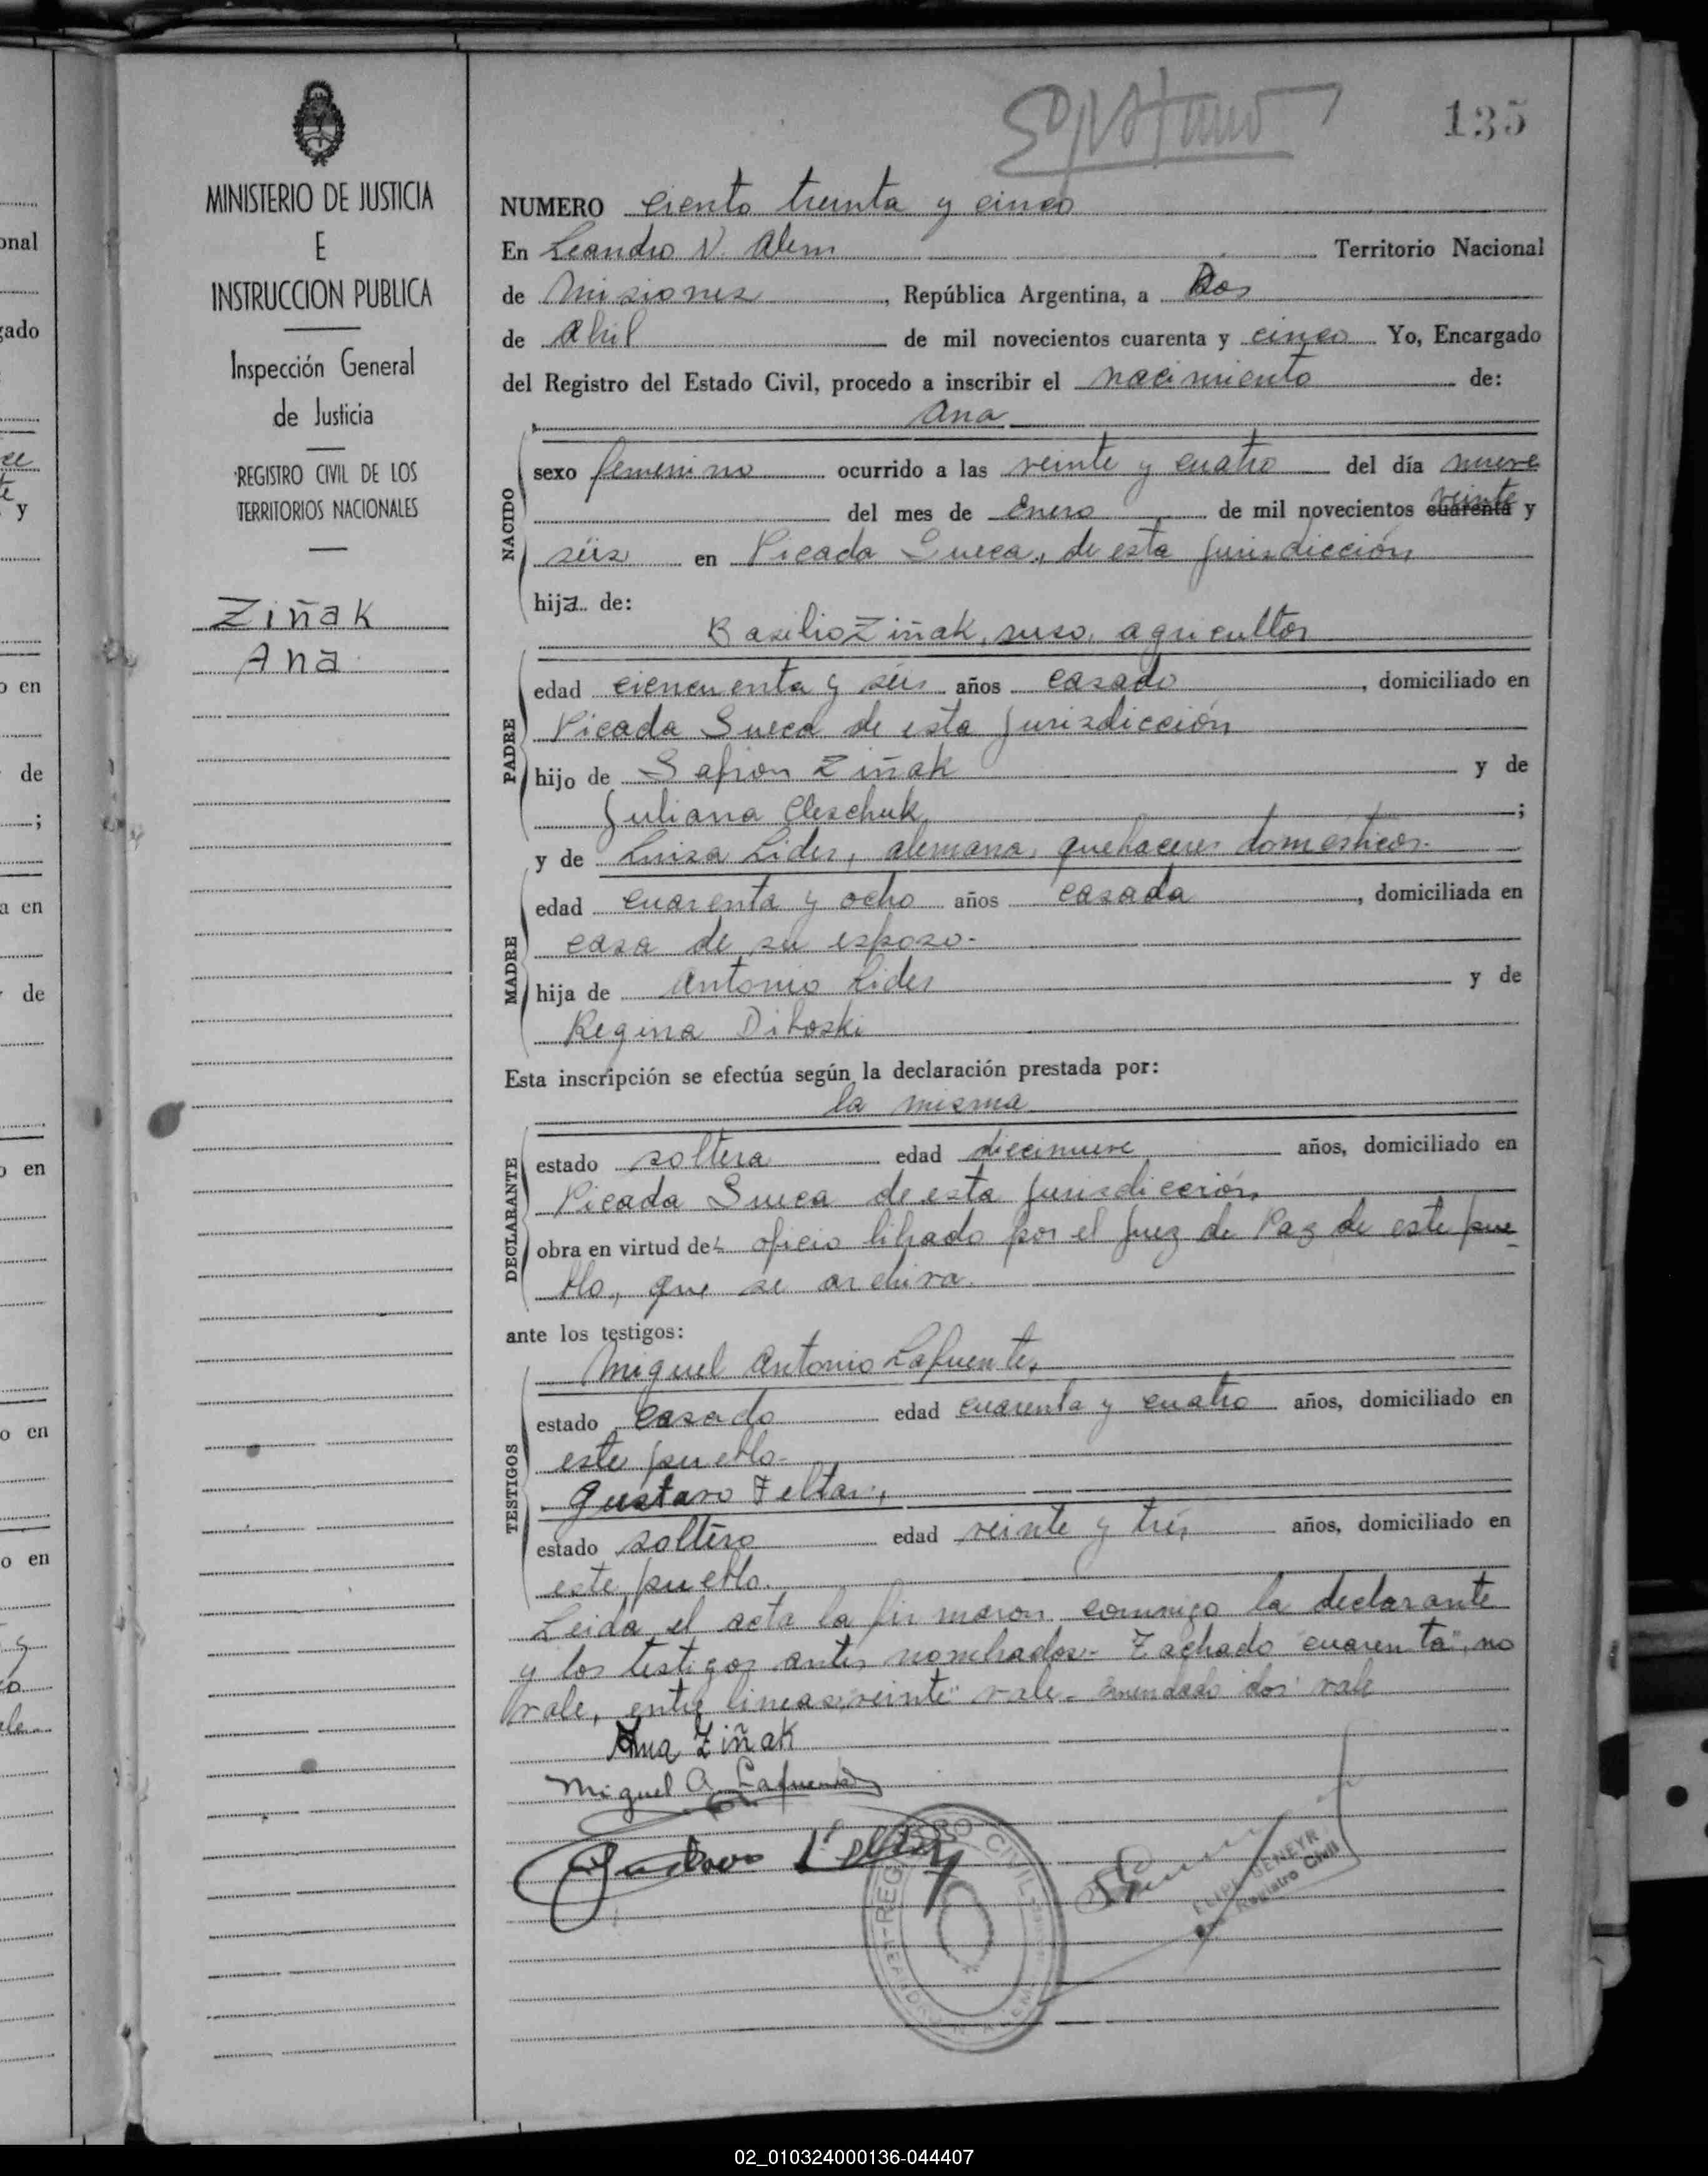 135
MINISTERIO DE JUSTICIA
E
INSTRUCCION PUBLICA
Inspección General
de Justicia
REGISTRO CIVIL DE LOS
TERRITORIOS NACIONALES
Ziñak
Ana
NUMERO ciento treinta y cinco
En Leandro N. Alem Territorio Nacional
de Misiones, República Argentina, a Dos
de Abril de mil novecientos cuarenta y cinco Yo, Encargado
del Registro del Estado Civil, procedo a inscribir el nacimiento de:
Ana
NACIDO
sexo femenino ocurrido a las veinte y cuatro del día nueve
veinte
del mes de Enero de mil novecientos cuarenta y
séis en Picada Sueca, de esta jurisdicción
hija de:
Basilio Ziñak, ruso, agricultor
PADRE
edad cincuenta y séis años casado, domiciliado en
Picada Sueca de esta jurisdicción
hijo de Safron Ziñak y de
Juliana Oleschuk;
y de Luisa Lider, alemana, quehaceres domésticos.
MADRE
edad cuarenta y ocho años casada, domiciliada en
casa de su esposo.-
hija de Antonio Lider y de
Regina Diboski
Esta inscripción se efectúa según la declaración prestada por:
la misma
DECLARANTE
estado soltera edad diecinueve años, domiciliado en
Picada Sueca de esta jurisdicción,
obra en virtud del oficio librado por el Juez de Paz de este pue
blo, que se archiva.
ante los testigos:
Miguel Antonio Lafuente,
TESTIGOS
estado casado edad cuarenta y cuatro años, domiciliado en
este pueblo.-
Gustavo Feltan,
estado soltero edad veinte y trés años, domiciliado en
este pueblo.
Leida el acta la firmaron conmigo la declarante
y los testigos antes nombrados.- Tachado "cuarenta", no
vale, entre lineas "veinte" vale.- Enmendado dos vale
Ana Ziñak
Miguel A. Lafuente
Gustavo
REGISTRO CIVIL
Registro Civil
onal
gado
y
o en
de
;
a en
de
o en
o en
o en
02_010324000136-044407